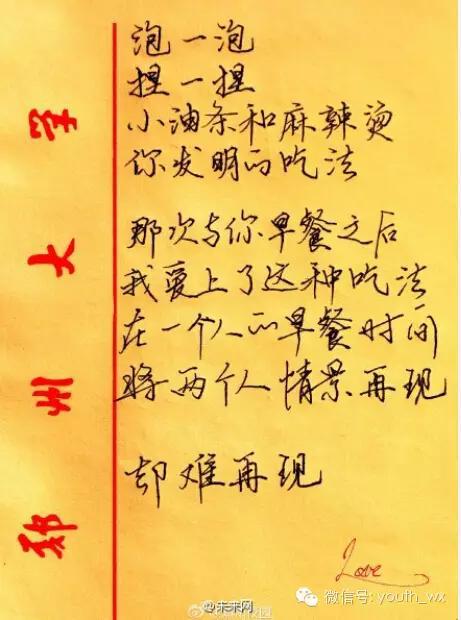 泡一泡
捏一捏
小油条和麻辣烫
你发明的吃法
那次与你早餐之后
我爱上了这种吃法
在一个人的早餐时间
将两个人情景再现
却难再现
郑州大学
Love
@未来网
微信号: youth_wx